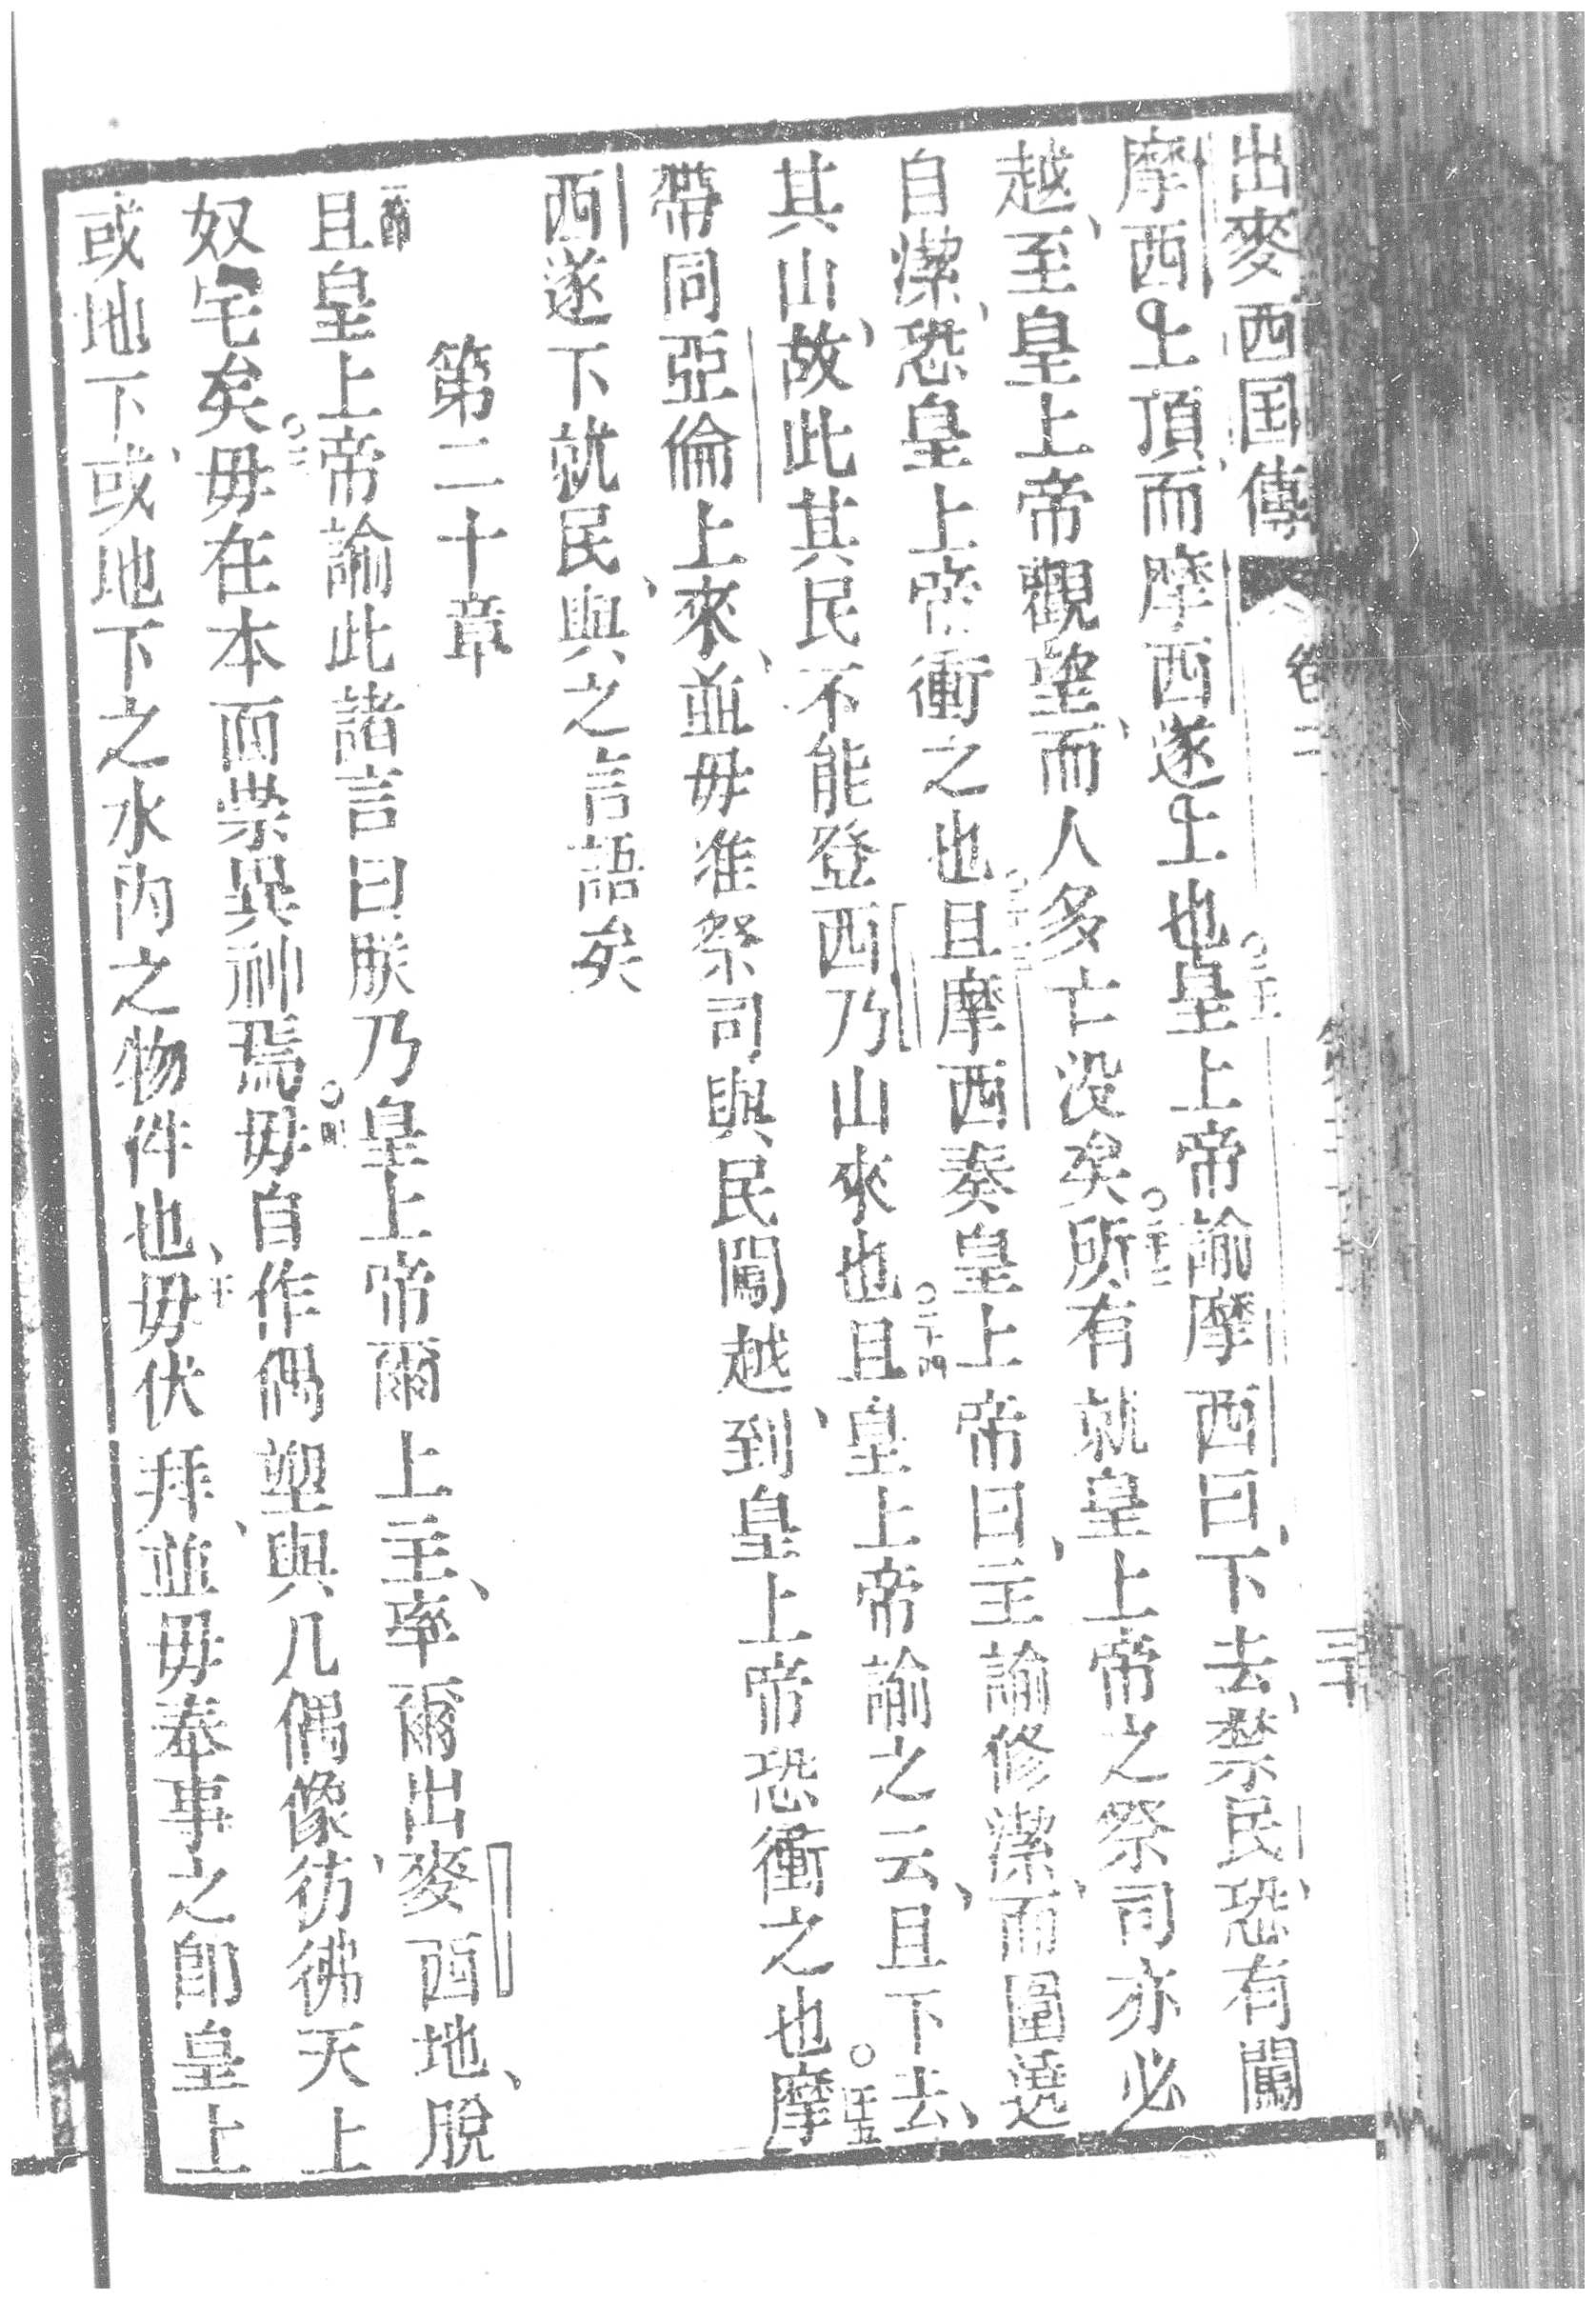 出麥西国傳 卷二 三十
摩西上頂而摩西遂上也○二十一皇上帝諭摩西曰、下去、禁民恐、有闖
越、至皇上帝觀望、而人多亡没矣○二十二所有就皇上帝之祭司亦必
自潔、恐皇上帝衝之也○二十三且摩西奏皇上帝曰、主諭修潔、而圍遶
其山、故此其民不能登西乃山來也○二十四且皇上帝諭之云、且下去、
帶同亞倫上來、並毋准祭司與民闖越、到皇上帝恐衝之也○二十五摩
西遂下就民、與之言語矣
第二十章
一二節且皇上帝諭此諸言曰朕乃皇上帝爾上主、率爾出麥西地、脫
奴宅矣○三毋在本面崇異神焉○四毋自作偶塑與凡偶像、彷彿天上
或地下、或地下之水內之物件也、五毋伏拜、並毋奉事之卽皇上